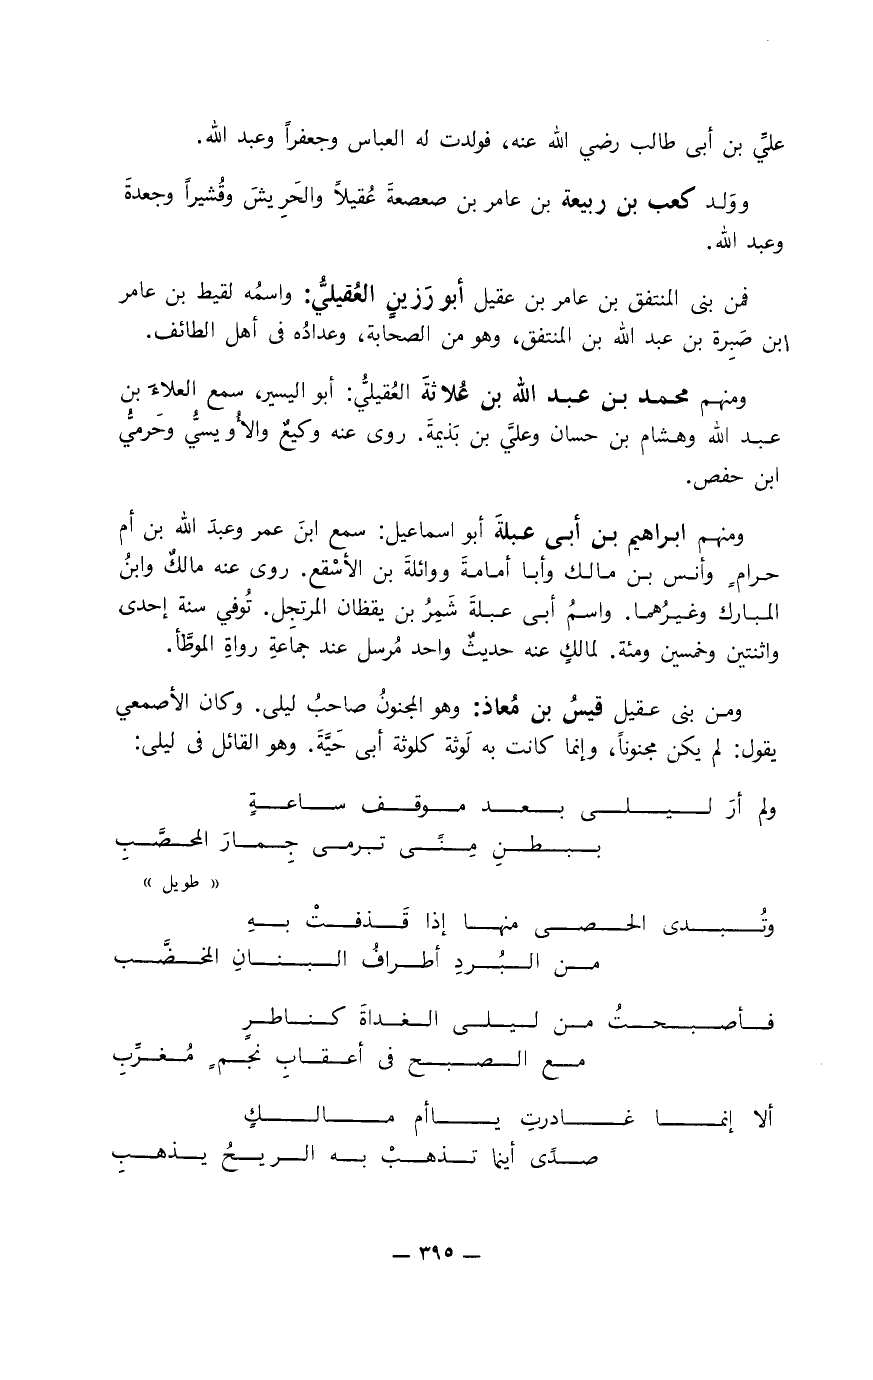 عليِّ بن أبى طالب رضي الله عنه، فولدت له العباس وجعفراً وعبد الله.
ووَلد كعب بن ربيعة بن عامر بن صعصعةَ عُقيلاً والحَرِيشَ وقُشيراً وجعدةَ
وعبد الله.
فمن بنى المنتفق بن عامر بن عقيل أبو رَزينٍ العُقيليُّ: واسمُه لقيط بن عامر
ابن صَبِرة بن عبد الله بن المنتفق، وهو من الصحابة، وعدادُه فى أهل الطائف.
ومنهم محمد بن عبد الله بن عُلاثةَ العُقيليُّ: أبو اليسير، سمع العلاءَ بن
عبد الله وهشام بن حسان وعليَّ بن بَذيمةَ. روى عنه وكيعٌ والأُويسيُّ وحَرميُّ
ابن حفص.
ومنهم ابراهيم بن أبى عبلةَ أبو اسماعيل: سمع ابنَ عمر وعبدَ الله بن أم
حرامٍ وأنس بن مالك وأبا أمامةَ وواثلةَ بن الأسْقع. روى عنه مالكٌ وابنُ
المبارك وغيرُهما. واسمُ أبى عبلةَ شَمِرُ بن يقظان المرتجِل. تُوفي سنة إحدى
واثنتين وخمسين ومئة. لمالكٍ عنه حديثٌ واحد مُرسل عند جماعةِ رواةِ الموطَّأ.
ومن بنى عقيل قيسُ بن مُعاذ: وهو المجنونُ صاحبُ ليلى. وكان الأصمعي
يقول: لم يكن مجنوناً، وإنما كانت به لَوثة كلوثة أبى حَيَّةَ. وهو القائل فى ليلى:
ولم أرَ ليلى بعد موقف ساعةٍ
ببطنِ مِنًى ترمى جِمارَ المحصَّبِ
« طويل »
وتُبدى الحصى منها إذا قَذفتْ بهِ
من البُردِ أطرافُ البنانِ المخضَّب
فأصبحتُ من ليلى الغداةَ كناظرٍ
مع الصبح فى أعقابِ نجمٍ مُغرِّبِ
ألا إنما غادرتِ ياأم مالكٍ
صدًى أينما تذهبْ به الريحُ يذهبِ
— ٣٩٥ —